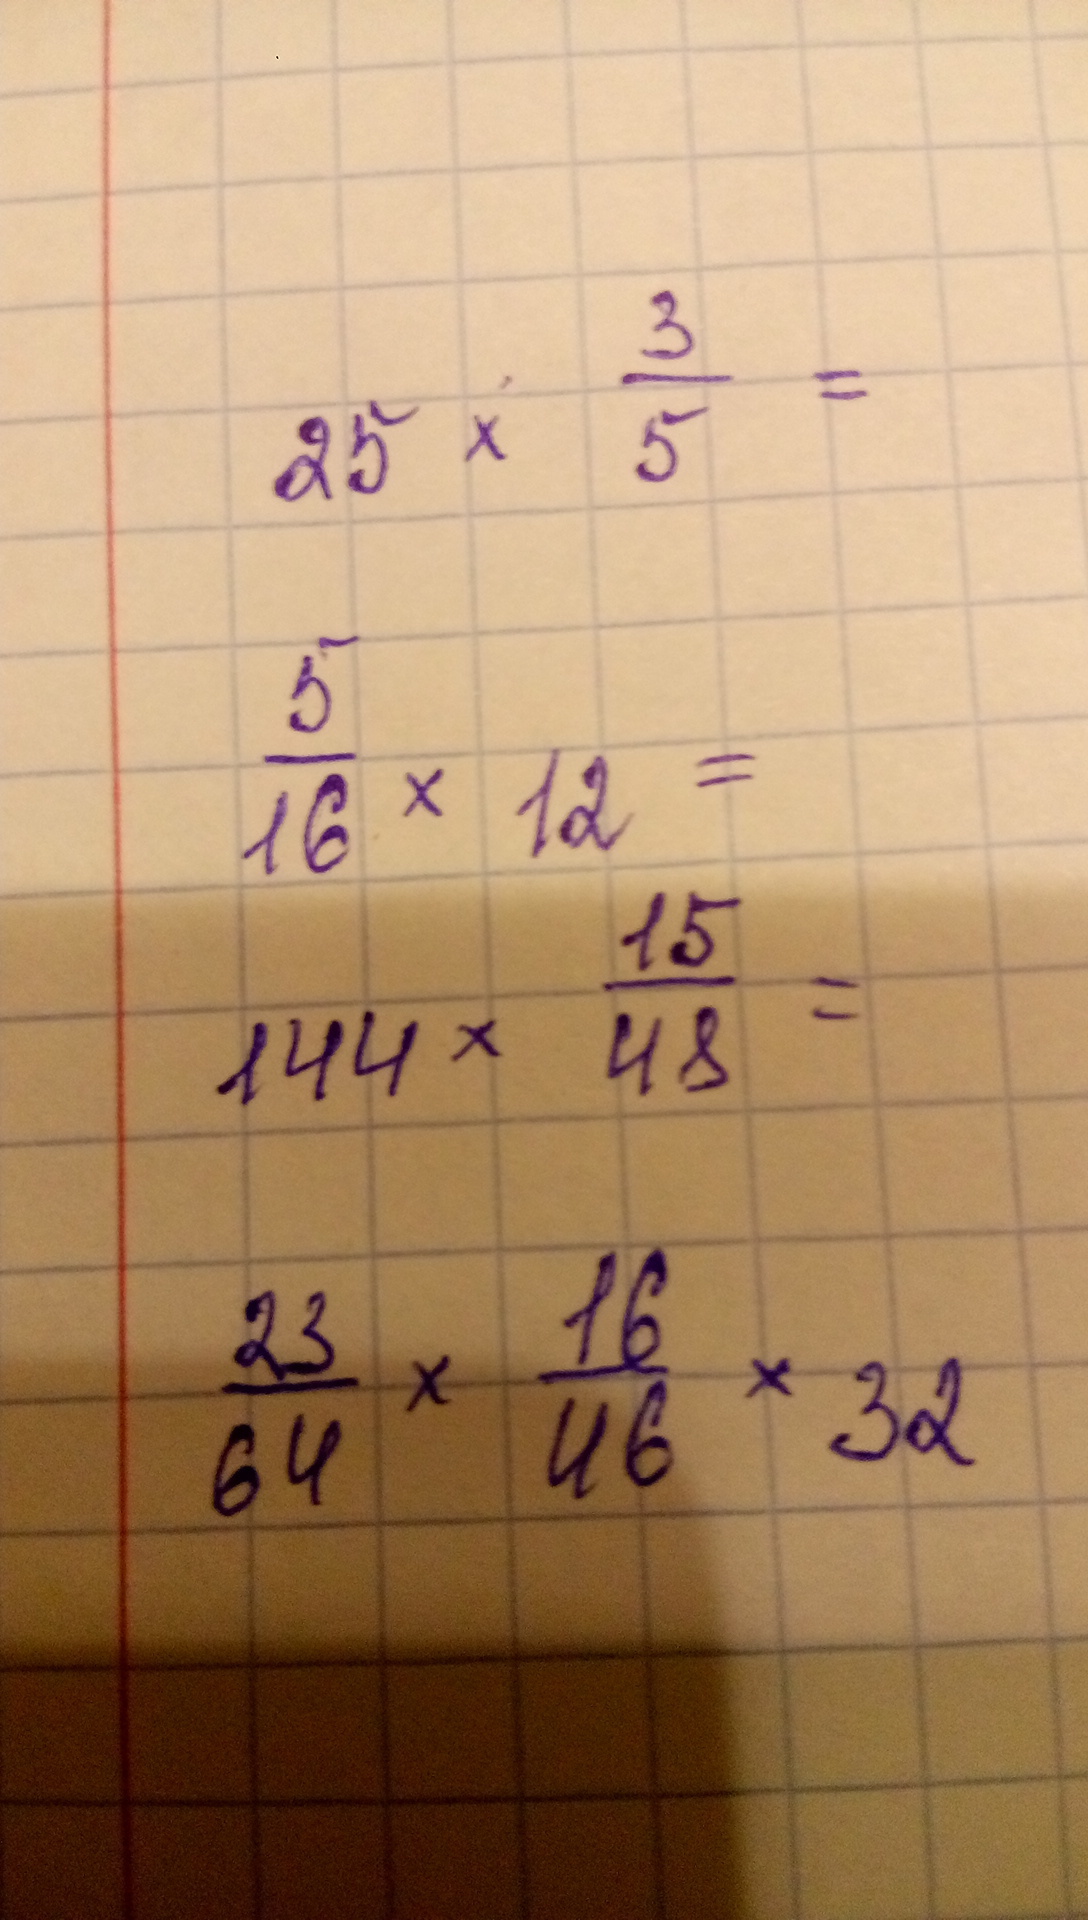 25 × 3/5 =
5/16 × 12 =
144 × 15/48 =
23/64 × 16/46 × 32